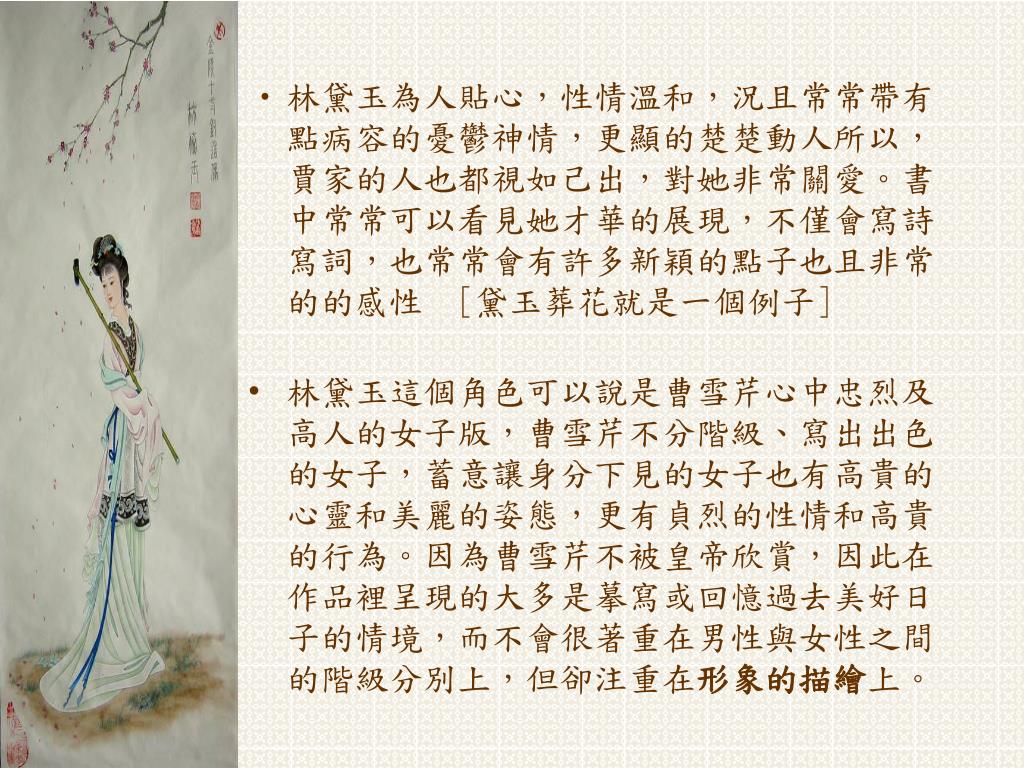 • 林黛玉為人貼心，性情溫和，況且常常帶有
點病容的憂鬱神情，更顯的楚楚動人所以，
賈家的人也都視如己出，對她非常關愛。書
中常常可以看見她才華的展現，不僅會寫詩
寫詞，也常常會有許多新穎的點子也且非常
的的感性 [黛玉葬花就是一個例子]
• 林黛玉這個角色可以說是曹雪芹心中忠烈及
高人的女子版，曹雪芹不分階級、寫出出色
的女子，蓄意讓身分下見的女子也有高貴的
心靈和美麗的姿態，更有貞烈的性情和高貴
的行為。因為曹雪芹不被皇帝欣賞，因此在
作品裡呈現的大多是摹寫或回憶過去美好日
子的情境，而不會很著重在男性與女性之間
的階級分別上，但卻注重在形象的描繪上。